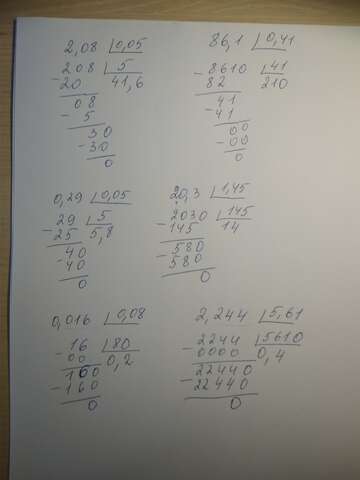 2,08 0,05 86,1 0,41
208 5 8610 41
- 20 41,6 - 82 210
08 41
- 5 - 41
30 00
- 30 - 00
0 0
0,29 0,05 20,3 1,45
- 29 5 2030 145
25 5,8 - 145 14
- 40 - 580
40 580
0 0
0,016 0,08 2,244 5,61
- 16 80 - 2244 5610
00 0,2 0000 0,4
160 - 22440
- 160 22440
0 0